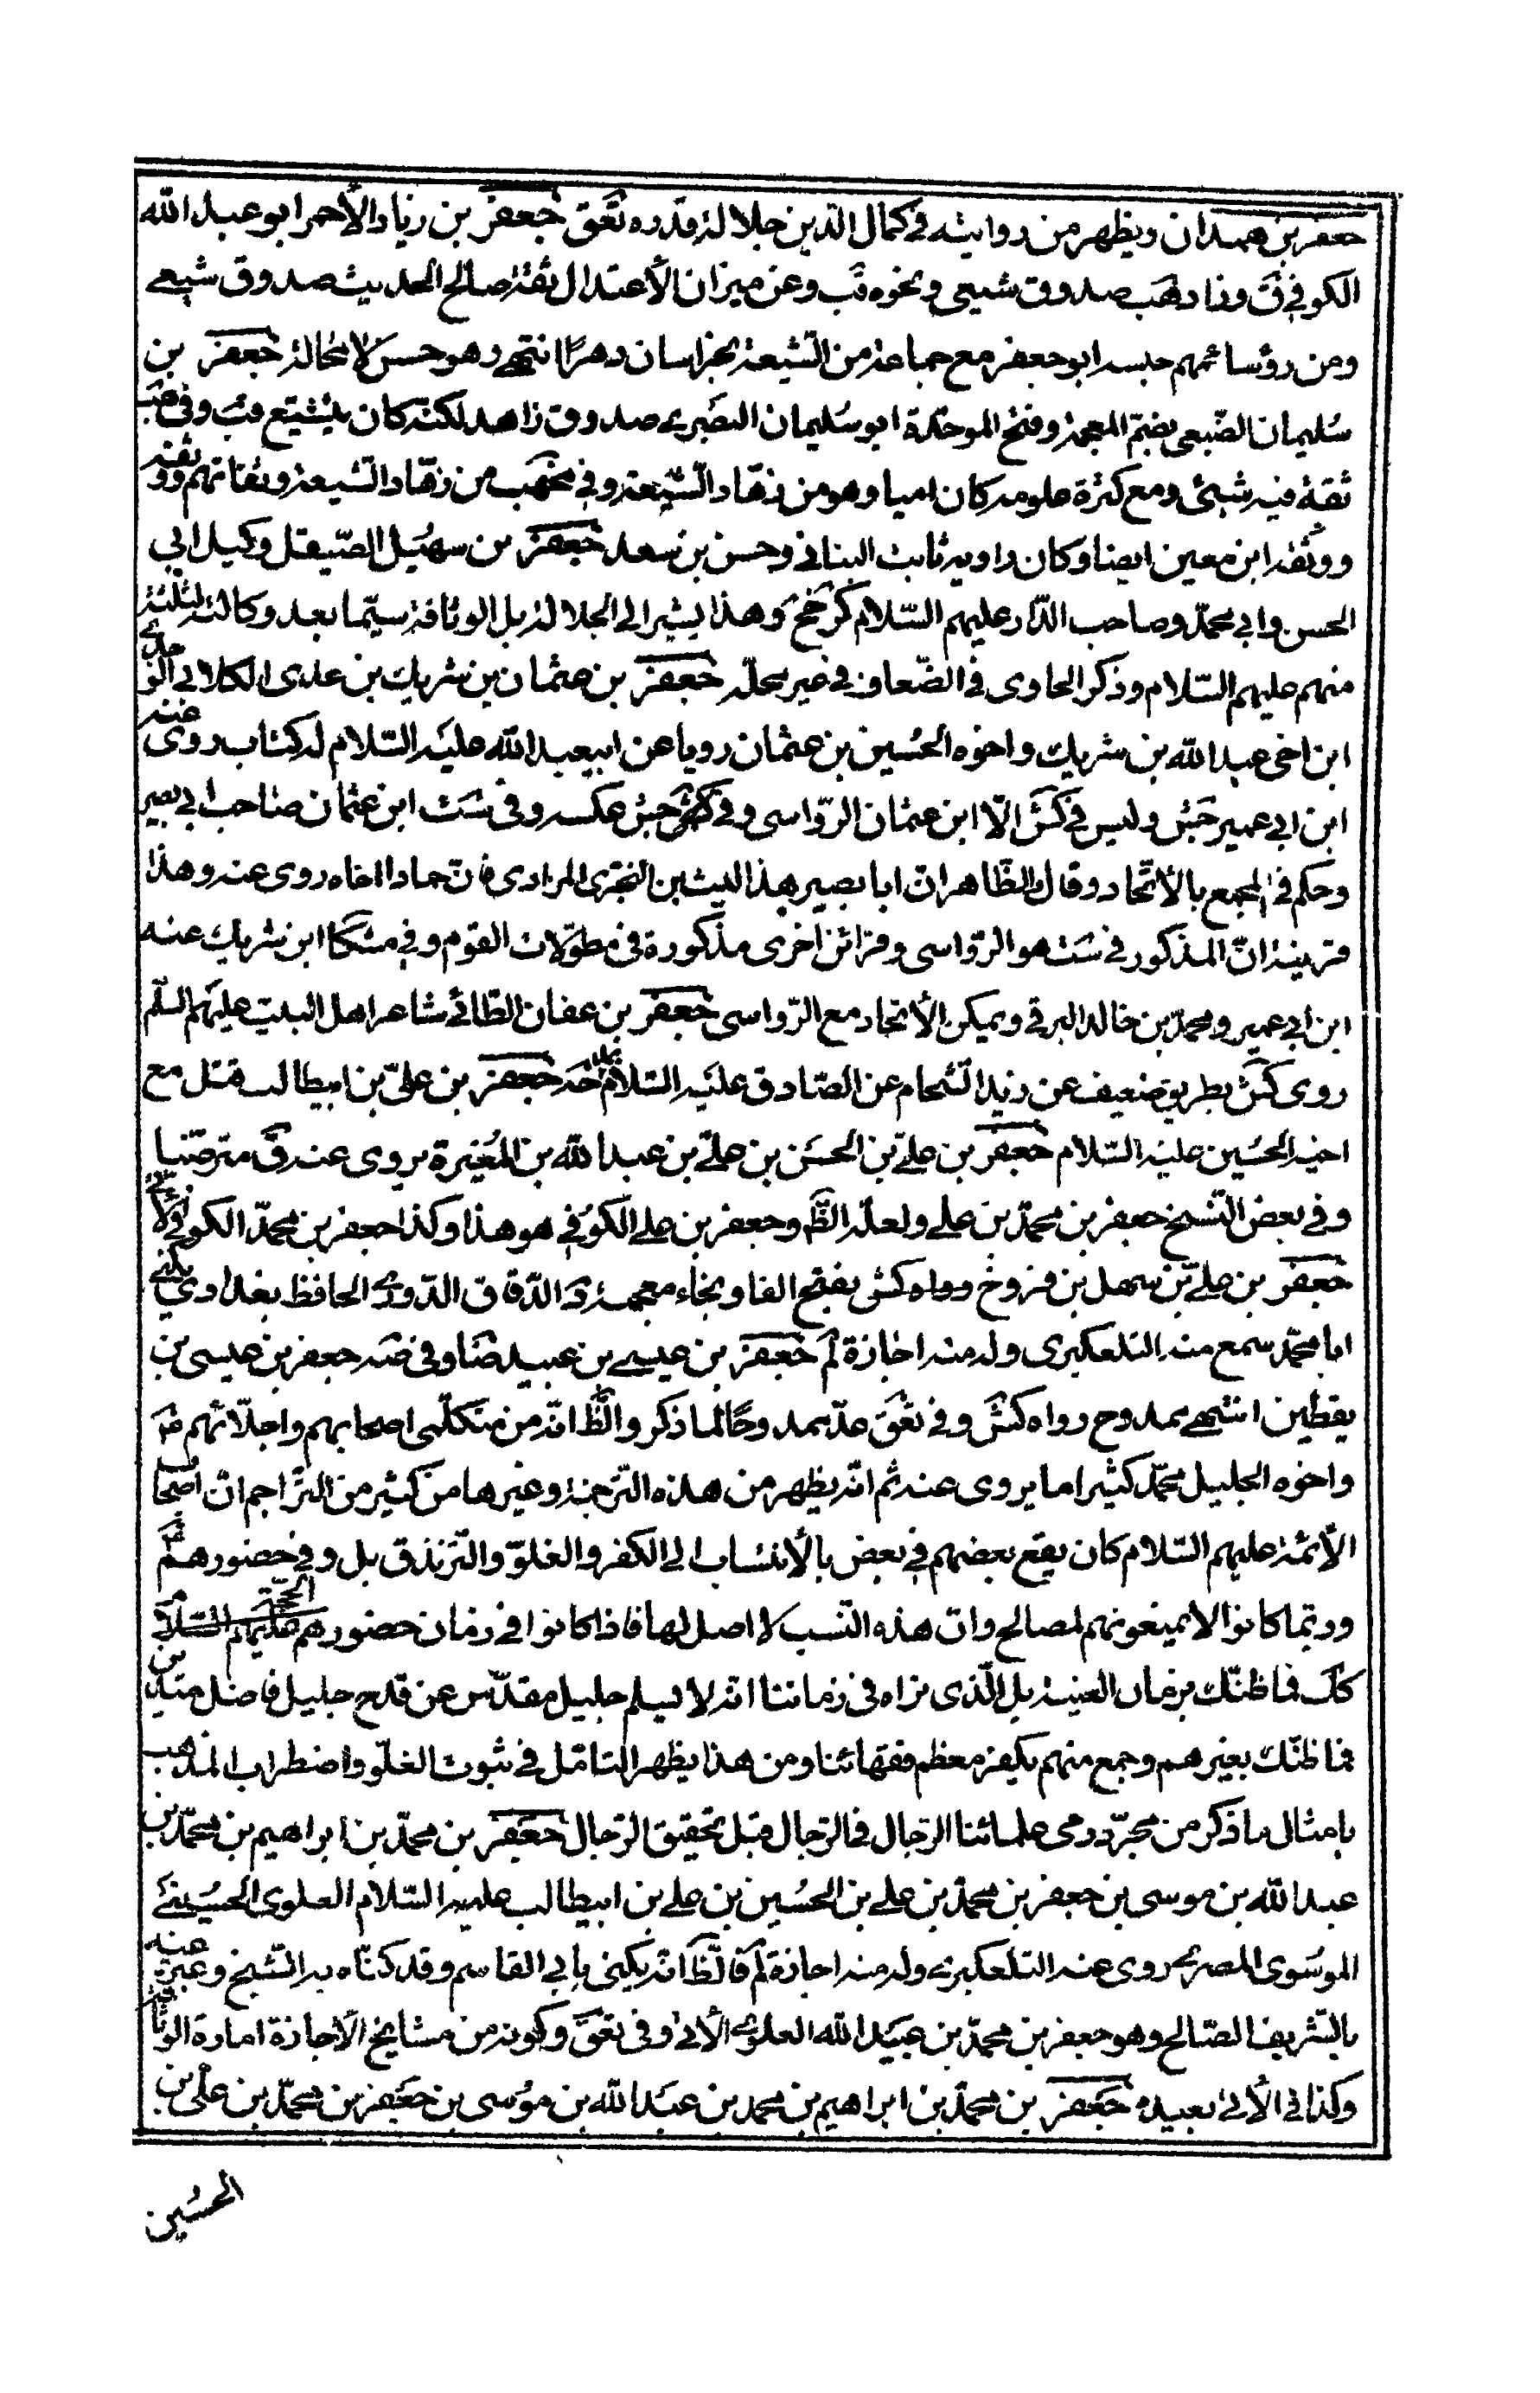 جعفر بن همدان ويظهر من روايته في كمال الدين جلالة قدره تعق جعفر بن زياد الأحمر ابو عبد الله
الكوفي ق وزاد هب صدوق شيعي ونحوه قب وعن ميزان الأعتدال ثقة صالح الحديث صدوق شيعي
ومن رؤسائهم حبسه ابو جعفر مع جماعة من الشيعة بخراسان دهرًا انتهى وهو حسن لا محالة جعفر بن
سليمان الضبعي بضم المعجمة وفتح الموحدة ابو سليمان البصري صدوق زاهد لكنه كان يتشيع قب وفي هب
ثقة فيه شيئ ومع كثرة علومه كان اميا وهو من زهاد الشيعة وفي مخهب من زهاد الشيعة وثقاتهم ووثقه
ووثقه ابن معين ايضا وكان راوية ثابت البناني وحسن بن سعد جعفر بن سهيل الصيقل وكيل ابي
الحسن وابي محمد وصاحب الدار عليهم السلام كر جخ وهذا يشير الى الجلالة بل الوثاقة سيما بعد وكالته لثلثة
منهم عليهم السلام وذكر الحاوى في الضعاف في غير محله جعفر بن عثمان بن شريك بن عدى الكلابي الوحيدي
ابن اخي عبد الله بن شريك واخوه الحسين بن عثمان رويا عن ابيعبد الله عليه السلام له كتاب روى عنه
ابن ابي عمير جش وليس في كش الّا ابن عثمان الرواسى وفي جش عكسه وفي ست ابن عثمان صاحب ابي بصير
وحكم في المجمع بالأتحاد وقال الظاهر ان ابا بصير هذا ليث بن البختري المرادى فان حمادا اخاه روى عنه وهذا
قرينة ان المذكور في ست هو الرواسى وقرائن اخرى مذكورة في مطولات القوم وفي مشكا ابن شريك عنه
ابن ابي عمير ومحمد بن خالد البرقي ويمكن الأتحاد مع الرواسى جعفر بن عفان الطائي شاعر اهل البيت عليهم السلم
روى كش بطريق ضعيف عن زيد الشحام عن الصادق عليه السلام جعفر بن علي بن ابيطالب قتل مع
اخيه الحسين عليه السلام جعفر بن علي بن الحسن بن علي بن عبد الله بن المغيرة يروى عنه ق مترضيا
وفي بعض النسخ جعفر بن محمد بن علي ولعله الظ وجعفر بن علي الكوفي هو هذا وكذا جعفر بن محمد الكوفي الأتي
جعفر بن علي بن سهل بن فروخ رواه كش بفتح الفا وبخاء معجمة د الدقاق الدوري الحافظ بغدادي يكنى
ابا محمد سمع منه التلعكبرى وله منه اجازة لم جعفر بن عيسى بن عبيد ضا وفي ضه جعفر بن عيسى بن
يقطين انتهى ممدوح رواه كش وفي تعق عدّ ممدوحًا لما ذكر والظ انه من متكلمى اصحابهم واجلائهم
واخوه الجليل محمد كثيرا ما يروى عنه ثم انه يظهر من هذه الترجمة وغيرها من كثير من التراجم ان اصحا
الأئمة عليهم السلام كان يقع بعضهم في بعض بالأنتساب الى الكفر والغلو والتزندق بل وفي حضورهم
وربما كانوا لا يمنعونهم لمصالح وان هذه النسب لا اصل لها فاذا كانوا في زمان حضور الحجة
كك فما ظنك بزمان الغيبة بل الذى نراه في زماننا انه لا يسلم جليل مقدس عن قدح جليل فاضل متدين
فما ظنك بغيرهم وجمع منهم يكفر معظم فقهائنا ومن هذا يظهر التامل في ثبوت الغلو واضطراب المذهب
بامثال ما ذكر من مجرد رمى علمائنا الرجال في الرجال قبل تحقيق الرجال جعفر بن محمد بن ابراهيم بن محمد بن
عبد الله بن موسى بن جعفر بن محمد بن علي بن الحسين بن علي بن ابيطالب عليه السلام العلوى الحسيني
الموسوى المصري روى عنه التلعكبرى وله منه اجازة لم قا الظا انه يكنى بابي القاسم وقد كناه به الشيخ وعبر عنه
بالشريف الصالح وهو جعفر بن محمد بن عبيد الله العلوي الأتي وفي تعق وكونه من مشايخ الأجازة امارة الوثاقة
وكذا في الأتي بعيده جعفر بن محمد بن ابراهيم بن محمد بن عبد الله بن موسى بن جعفر بن محمد بن علي بن
الحسين